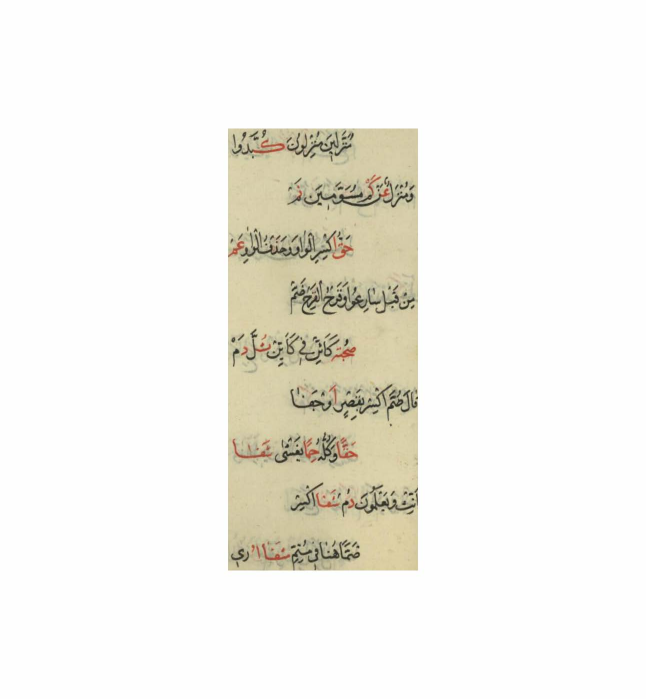 مُنَزَّلِينَ مُنْزِلُونَ كُبَّدُوا
وَمُنْزَلٌ عَنْ كَمْ مُسَوَّمِينَ نَمْ
حَقٌّ اكْسِرِ الْوَاوَ وَحَذْفُ الْوَاوِ عَمْ
مِنْ قَبْلِ سَارِعُوا وَقَرْحُ الْقَرْحُ ضَمّ
صُحْبَةِ كَائِنْ فِي كَأَيِّنْ دُمْ
قَاتَلَ ضُمَّ اكْسِرْ بِقَصْرٍ أَوْ جَفَا
حَقًّا وَكُلُّهُ حِمًا يَغْشَى شَفَا
أَنِّثْ وَيَعْمَلُونَ دُمْ شَفَا اكْسِرْ
ضَمًّا هُنَا فِي مُتُّمُ شَفَا أُرِي